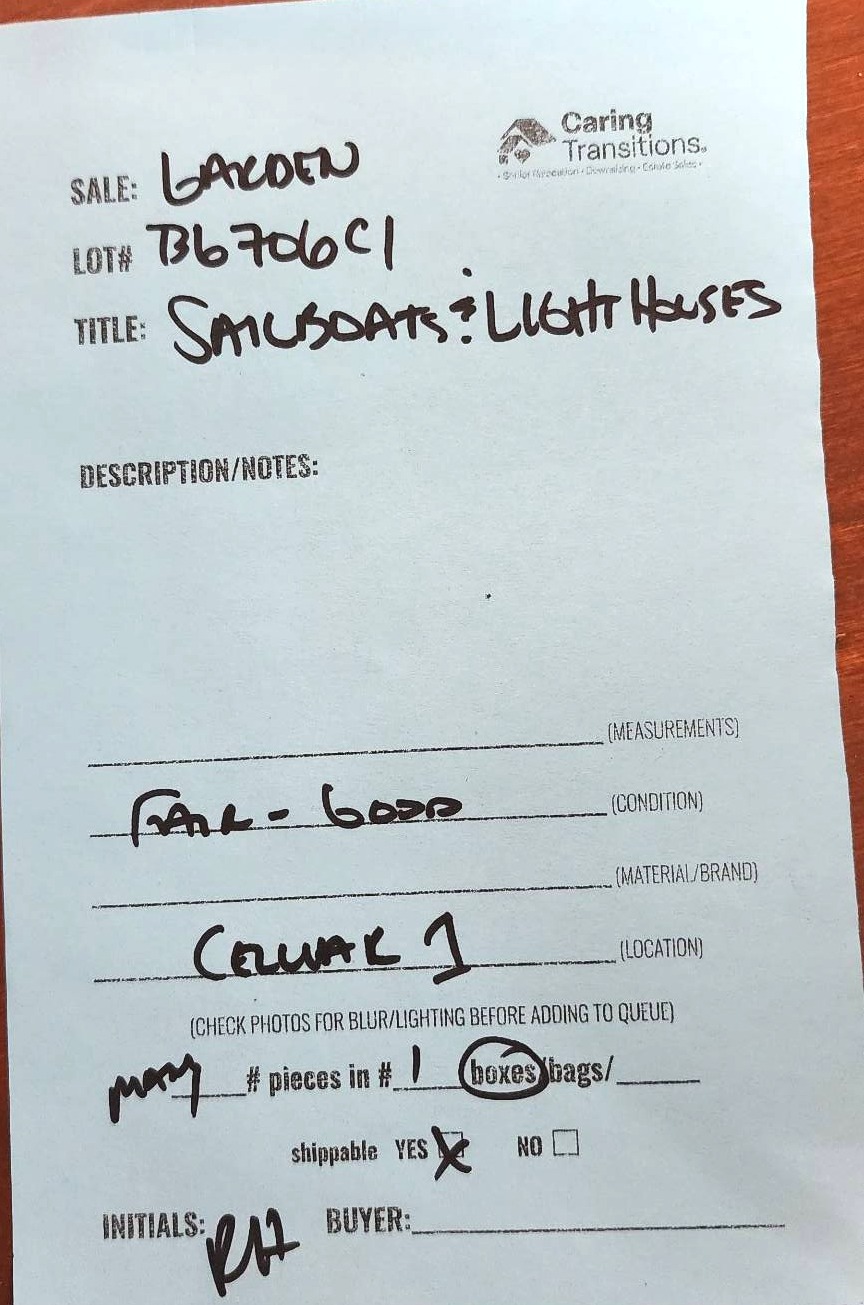 Caring
Transitions.
• Senior Relocation • Downsizing • Estate Sales •
SALE: GARDEN
LOT# B6706C1
TITLE: SAILBOATS & LIGHT HOUSES
DESCRIPTION/NOTES:
(MEASUREMENTS)
FAIR - GOOD (CONDITION)
(MATERIAL/BRAND)
CELLAR 1 (LOCATION)
(CHECK PHOTOS FOR BLUR/LIGHTING BEFORE ADDING TO QUEUE)
many # pieces in # 1 boxes/bags/
shippable YES X NO
INITIALS: RH BUYER: